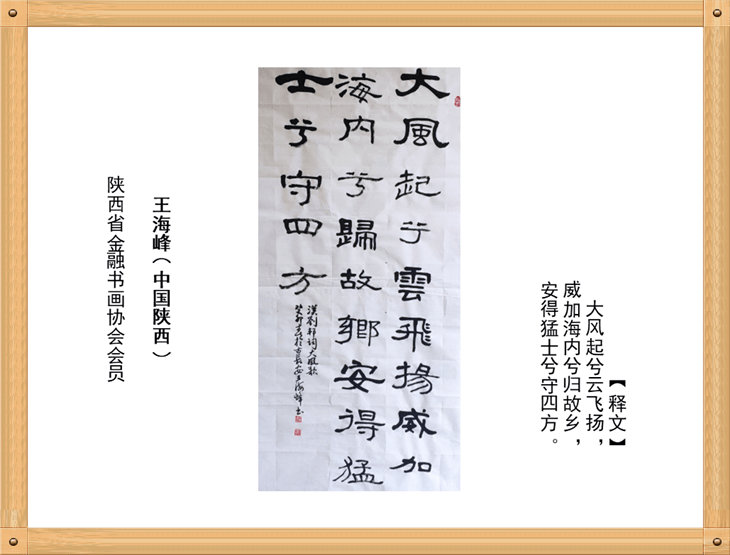 【释文】
大风起兮云飞扬，
威加海内兮归故乡，
安得猛士兮守四方。
大風起兮雲飛揚威加
海内兮歸故鄉安得猛
士兮守四方
漢劉邦詞大風歌
癸卯春於古長安王海峰書
王海峰（中国陕西）
陕西省金融书画协会会员